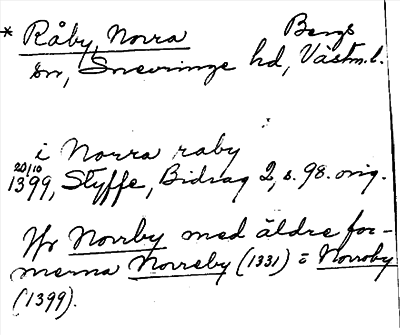 * Råby, Norra Bergs
sn, Snevringe hd, Västm.l.
i Norra raby
20/10
1399, Styffe, Bidrag 2, s. 98. orig.
Jfr Norrby med äldre for-
merna Norreby (1331) = Norroby
(1399).